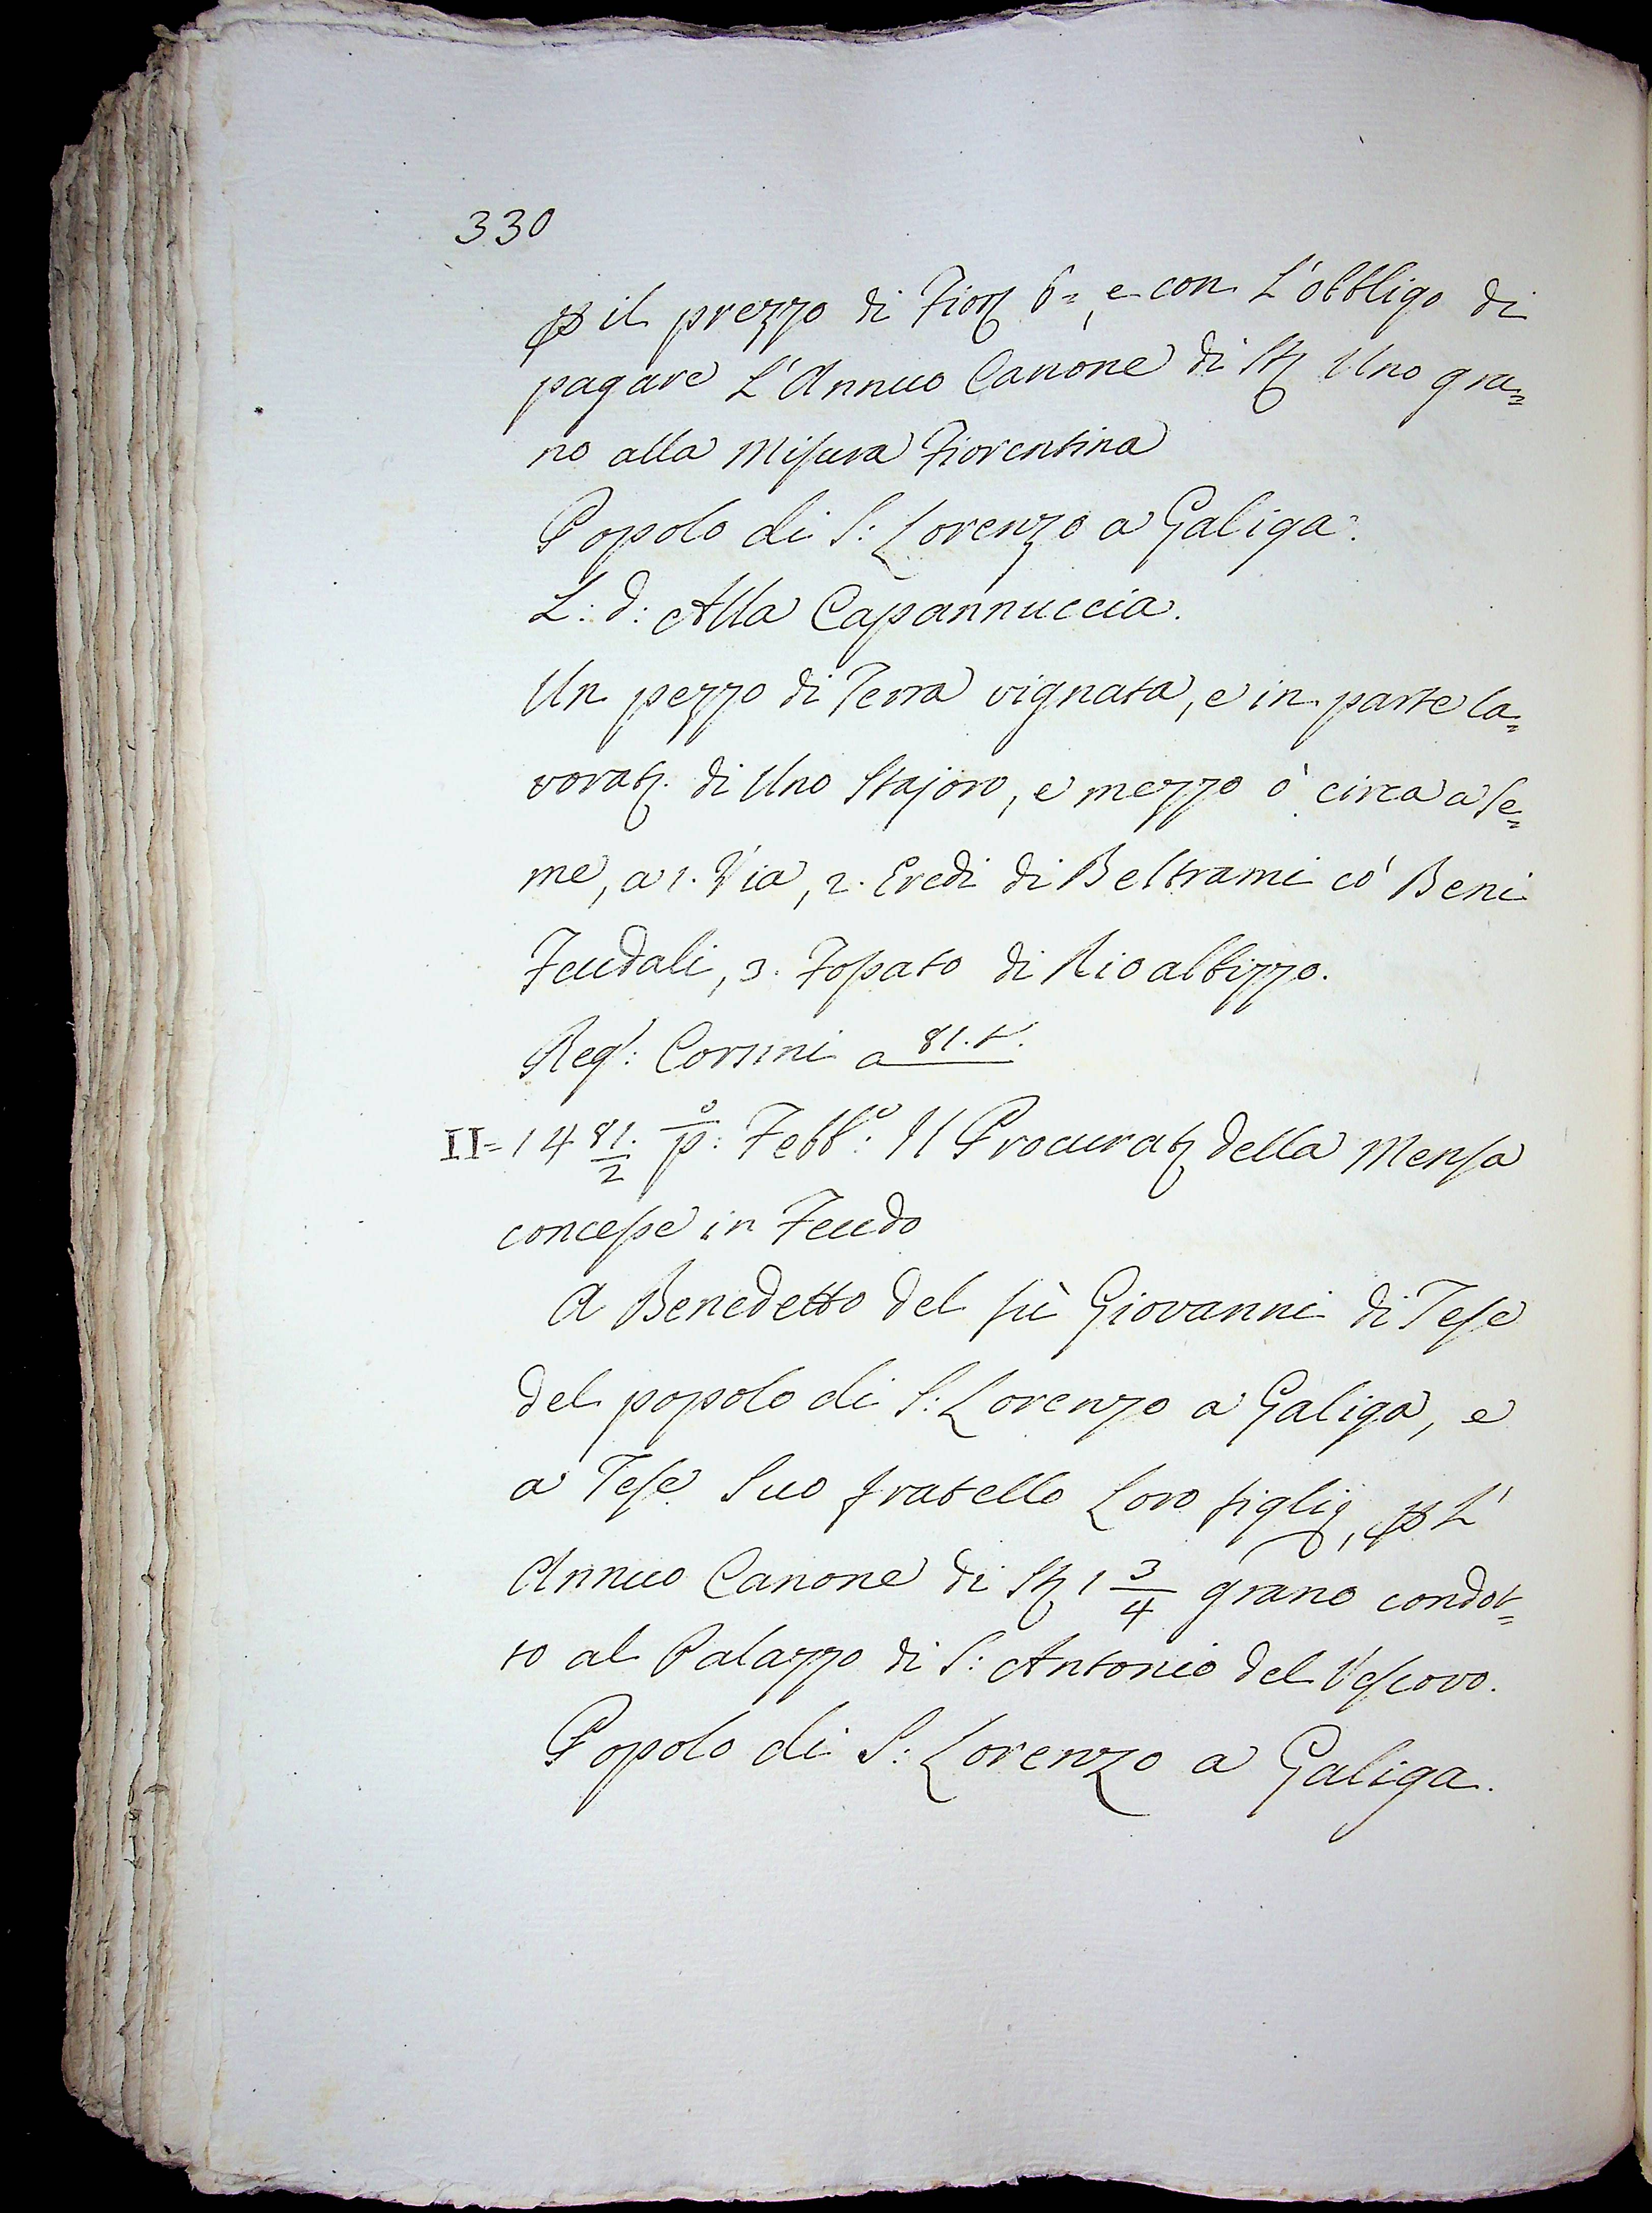 330
p il prezzo di Fior 6=, e con L'obbligo di
pagare L'Annuo Canone di St Uno gra=
no alla Misura Fiorentina
Popolo di S: Lorenzo a Galiga.
L: d: Alla Capannuccia.
Un pezzo di Terra vignata, e in parte la=
vorat. di Uno Stajoro, e mezzo ò circa a se=
me, a 1. Via, 2. Eredi di Beltrami có Beni
Feudali, 3. Fossato di Rioalbizzo.
Reg: Corsini a 81. t.
II= 1481/2. p.o: Febb.o: Il Procurat della Mensa
concesse in Feudo
A Benedetto del fù Giovanni di Tese
del popolo di S: Lorenzo a Galiga, e
a Tese Suo fratello Loro figlij, p L'
Annuo Canone di St 1 3/4 grano condot=
to al Palazzo di S: Antonio del Vescovo.
Popolo di S: Lorenzo a Galiga.